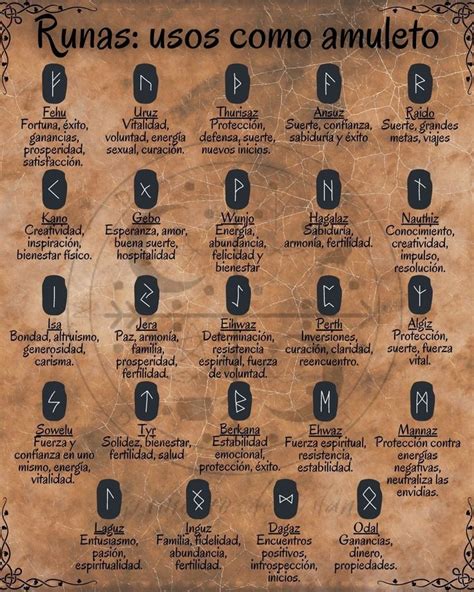 Runas: usos como amuleto
Fehu
Fortuna, éxito,
ganancias,
prosperidad,
satisfacción.
Uruz
Vitalidad,
voluntad, energía
sexual, curación.
Thurisaz
Protección,
defensa, suerte,
nuevos inicios.
Ansuz
Suerte, confianza,
sabiduría y éxito
Raido
Suerte, grandes
metas, viajes
Kano
Creatividad,
inspiración,
bienestar físico.
Gebo
Esperanza, amor,
buena suerte,
hospitalidad
Wunjo
Energía,
abundancia,
felicidad y
bienestar
Hagalaz
Sabiduría,
armonía, fertilidad.
Nauthiz
Conocimiento,
creatividad,
impulso,
resolución.
Isa
Bondad, altruismo,
generosidad,
carisma.
Jera
Paz, armonía,
familia,
prosperidad,
fertilidad
Eihwaz
Determinación,
resistencia
espiritual, fuerza
de voluntad.
Perth
Inversiones,
curación, claridad,
reencuentro.
Algiz
Protección,
suerte, fuerza
vital.
Sowelu
Fuerza y
confianza en uno
mismo, energía,
vitalidad.
Tyr
Solidez, bienestar,
fertilidad, salud
Berkana
Estabilidad
emocional,
protección, éxito.
Ehwaz
Fuerza espiritual,
resistencia,
estabilidad.
Mannaz
Protección contra
energías
negativas,
neutraliza las
envidias.
Laguz
Entusiasmo,
pasión,
espiritualidad.
Inguz
Familia, fidelidad,
abundancia,
fertilidad.
Dagaz
Encuentros
positivos,
introspección,
inicios.
Odal
Ganancias,
dinero,
propiedades.